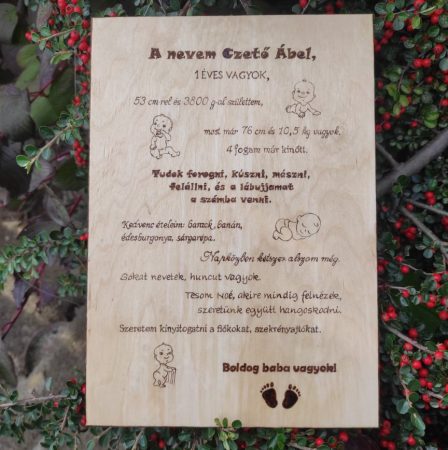 A nevem Czető Ábel,
1 ÉVES VAGYOK,
53 cm rel és 3800 g-al születtem,
most már 76 cm és 10,5 kg vagyok.
4 fogam már kinőtt.
Tudok forogni, kúszni, mászni,
felállni, és a lábujjamat
a számba venni.
Kedvenc ételeim: barack, banán,
édesburgonya, sárgarépa.
Napközben kétszer alszom még.
Sokat nevetek, huncut vagyok.
Tesóm Noé, akire mindig felnézek,
szeretünk együtt hangoskodni.
Szeretem kinyitogatni a fiókokat, szekrényajtókat.
Boldog baba vagyok!